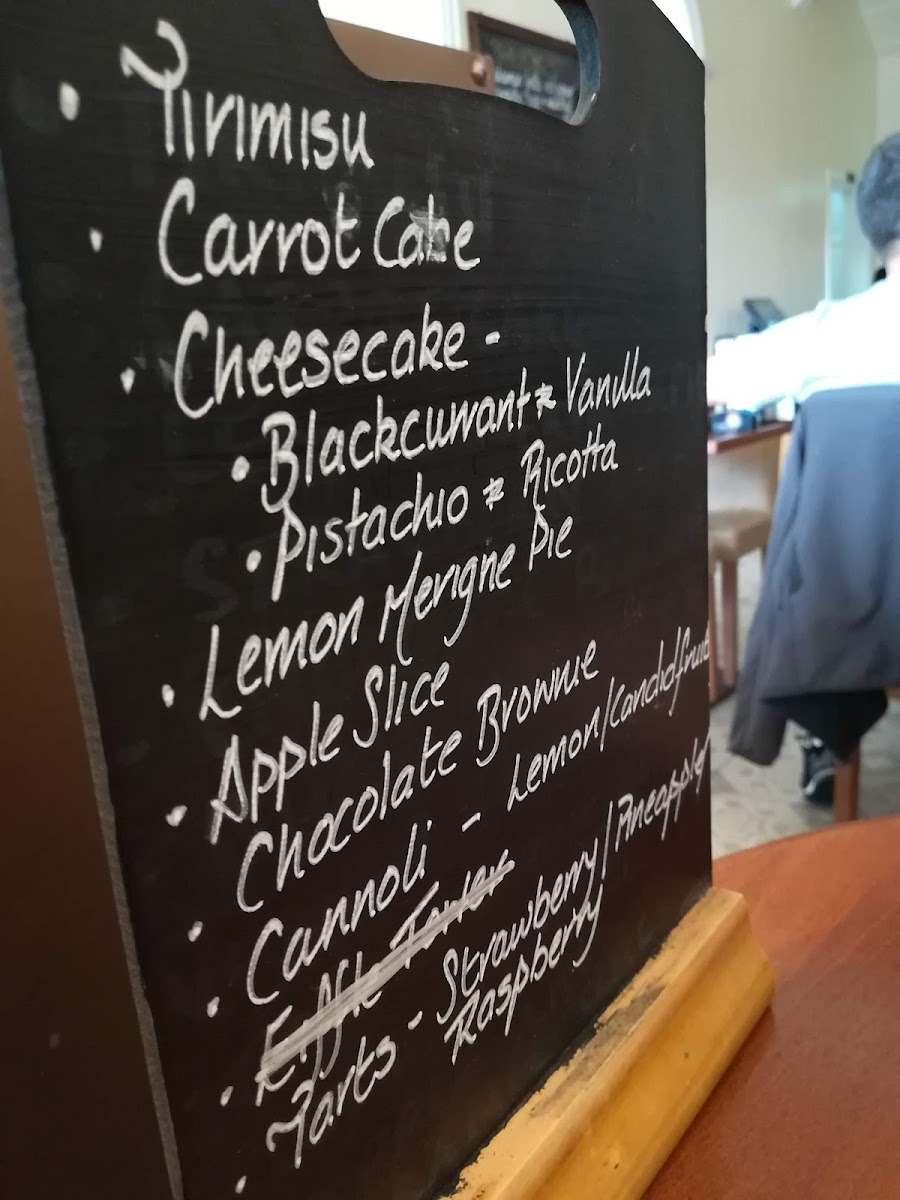 • Tirimisu
• Carrot Cake
• Cheesecake -
• Blackcurrant & Vanilla
• Pistachio & Ricotta
• Lemon Merigne Pie
• Apple Slice
• Chocolate Brownie
• Cannoli - Lemon/Candidfruit
• Effle Tower
• Tarts - Strawberry/Pineapple/
Raspberry